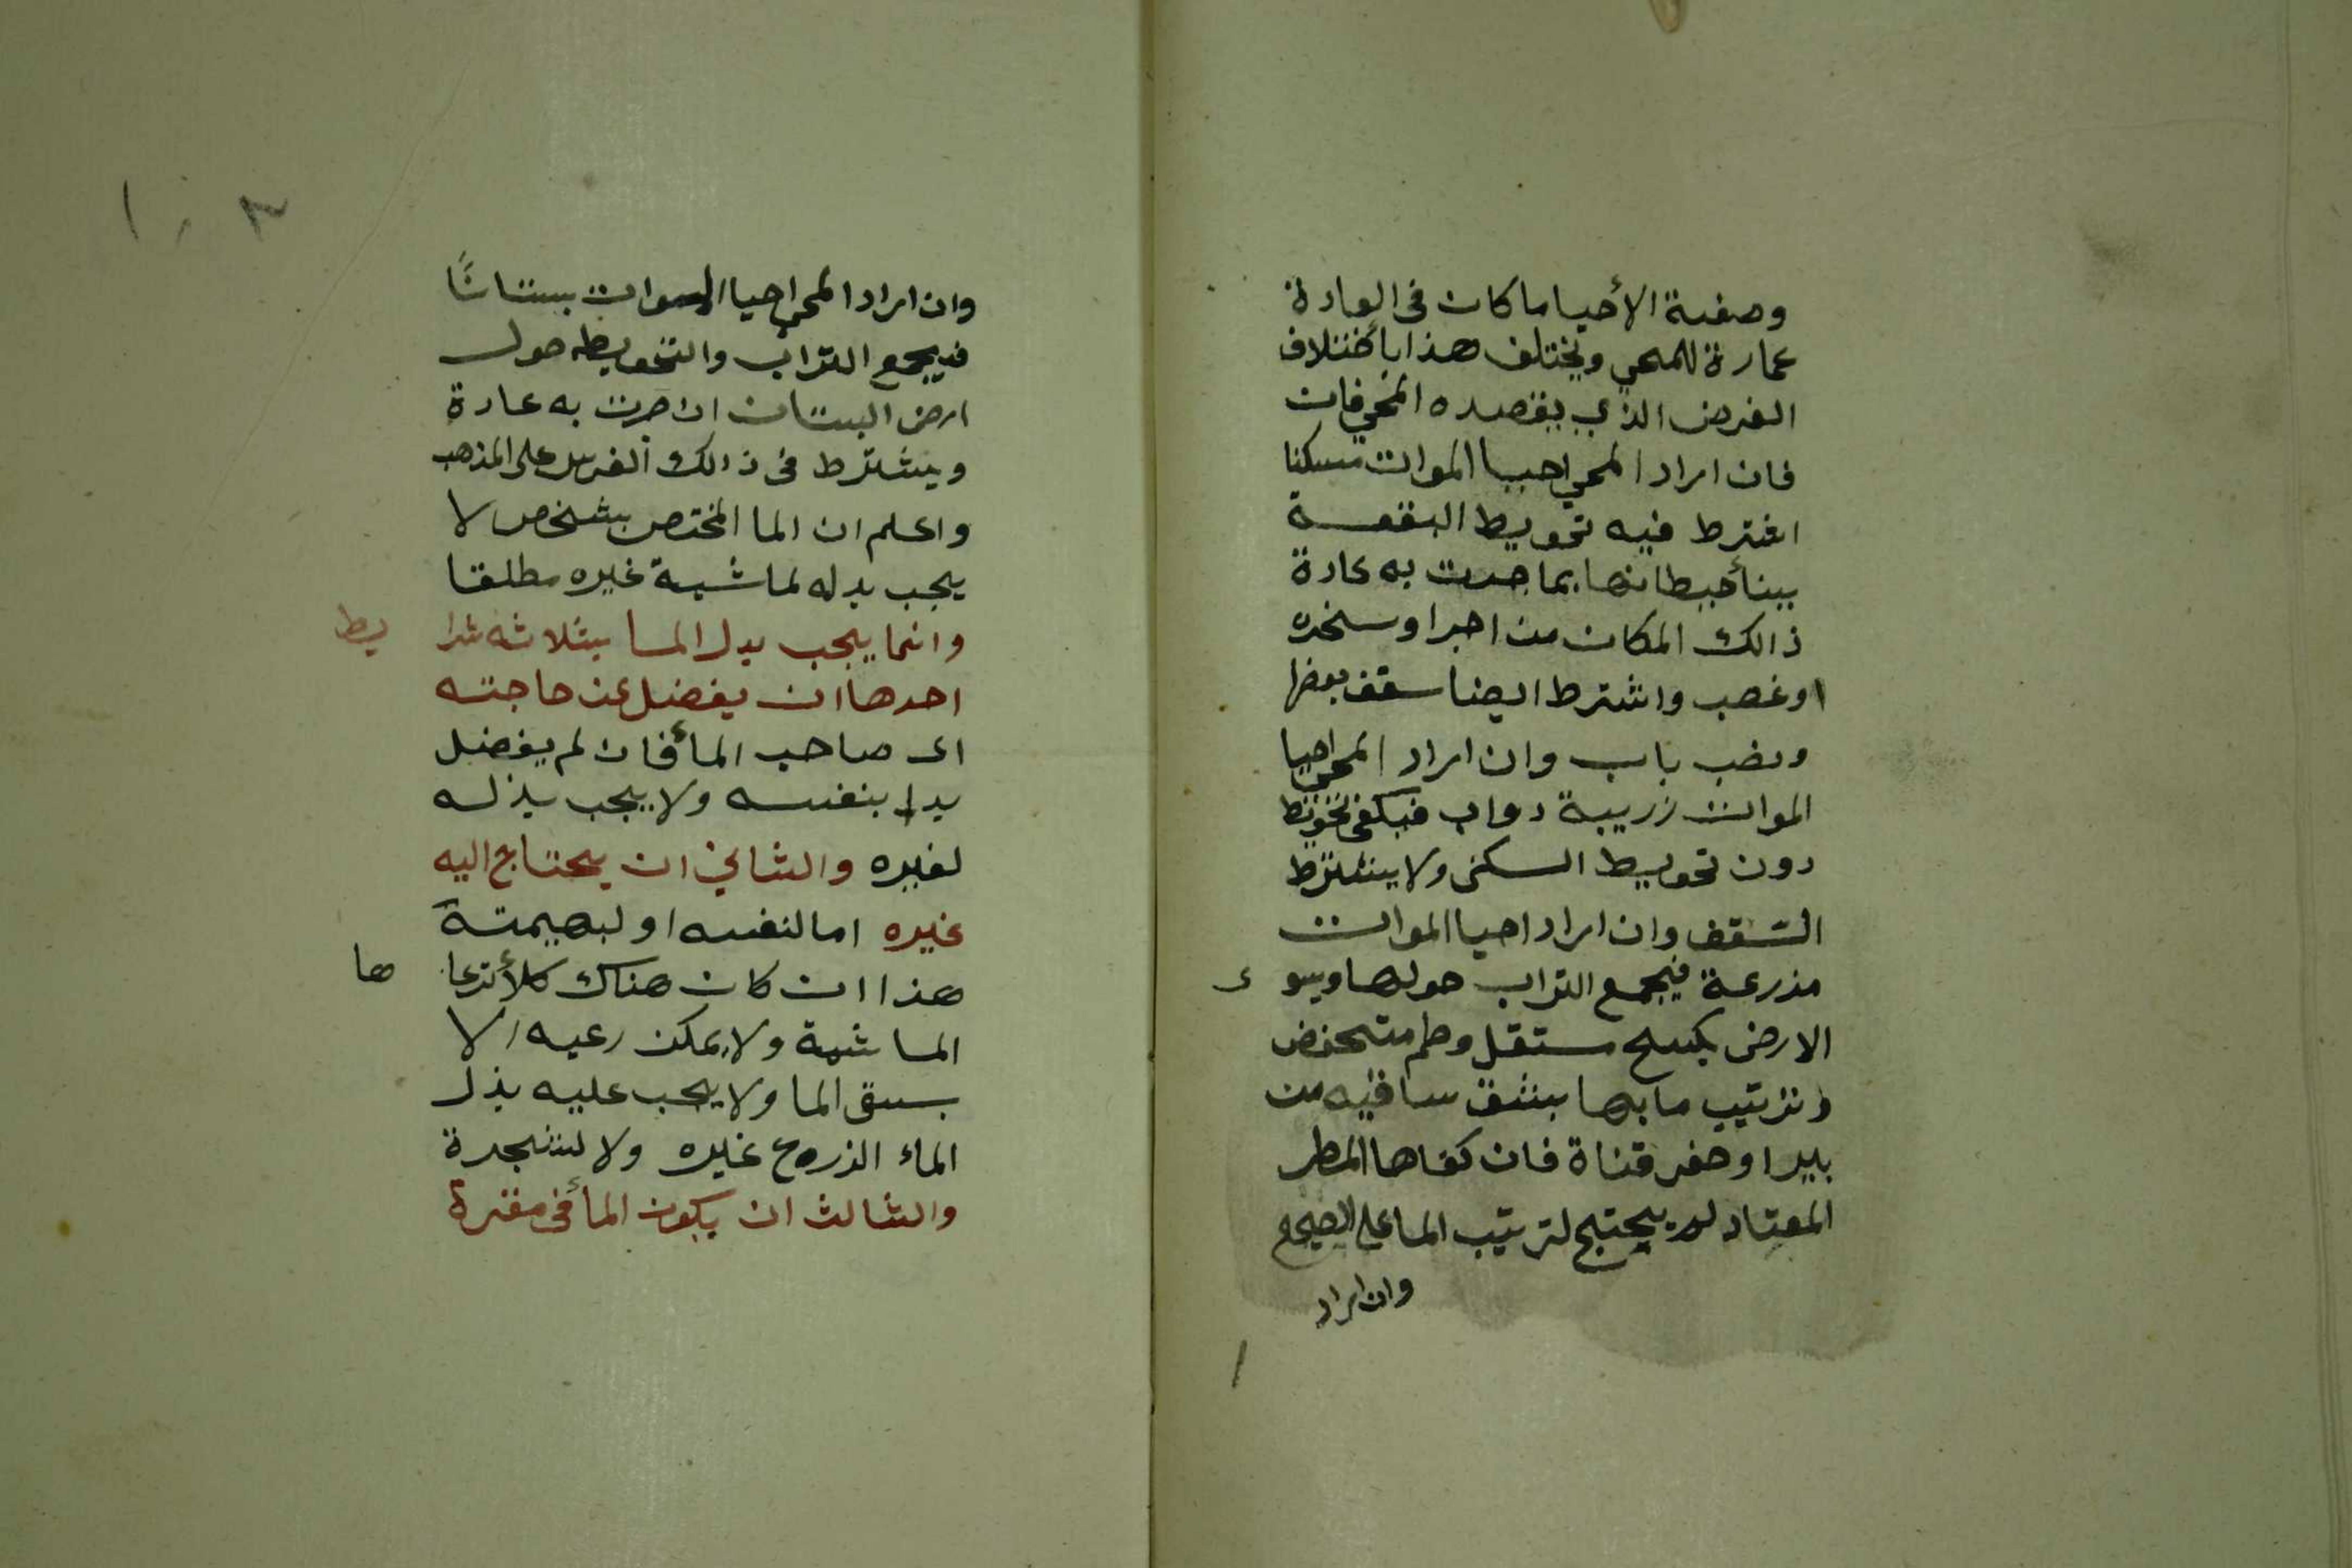 وصفة الأحيا ما كان في العادة
عمارة للمحي ويختلف هذا بأختلاف
الغرض الذي يقصده المحي فان
فان اراد المحي احيا الموات مسكنا
اشترط فيه تحويط البقعة
ببنأ حيطانها بما جرت به عادة
ذالك المكان من اجر او
او غصب واشترط ايضا سقف بعضها
ونصب باب وان اراد المحي احيا
الموات زريبة دواب فيكفي تحويط
دون تحويط السكنى ولا يشترط
السقف وان اراد احيا الموات
مزرعة فيجمع التراب حولها ويسو ى
الارض بكسح مستعل وطم منخفض
وترتيب ما بها بشق ساقيه من
بير او حفر قناة فان كفاها المطر
المعتاد لم يحتج لترتيب الما على الصحيح
وان اراد
١٠٣
وان اراد المحي احيا الموات بستانًا
فيجمع التراب والتحويط حول
ارض البستان ان جرت به عادة
ويشترط في ذالك الغرس على المذهب
واعلم ان الما المختص بشخص لا
يجب بدله لماشية غيره مطلقا
وانما يجب بدل الما بثلاثه شرا يط
احدها ان يفضل عن حاجته
اى صاحب المأ فان لم يفضل
بدا بنفسه ولا يجب بذله
لغيره والثاني ان يحتاج اليه
غيره اما لنفسه او لبهيمته
هذا ان كان هناك كلأ ترعا ها
الماشية ولا يمكن رعيه الا
بسقى الما ولا يجب عليه بذل
الماء الزرع غيره ولا لشجرة
والثالث ان يكون المأ في مقرة